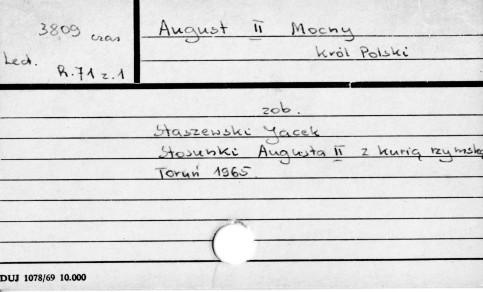 3809 czas
Lect.
R.71 z.1
August II Mocny
Król Polski
zob.
Staszewski Jacek
Stosunki Augusta II z kurią rzymską
Toruń 1965.
DUJ 1078/69 10.000